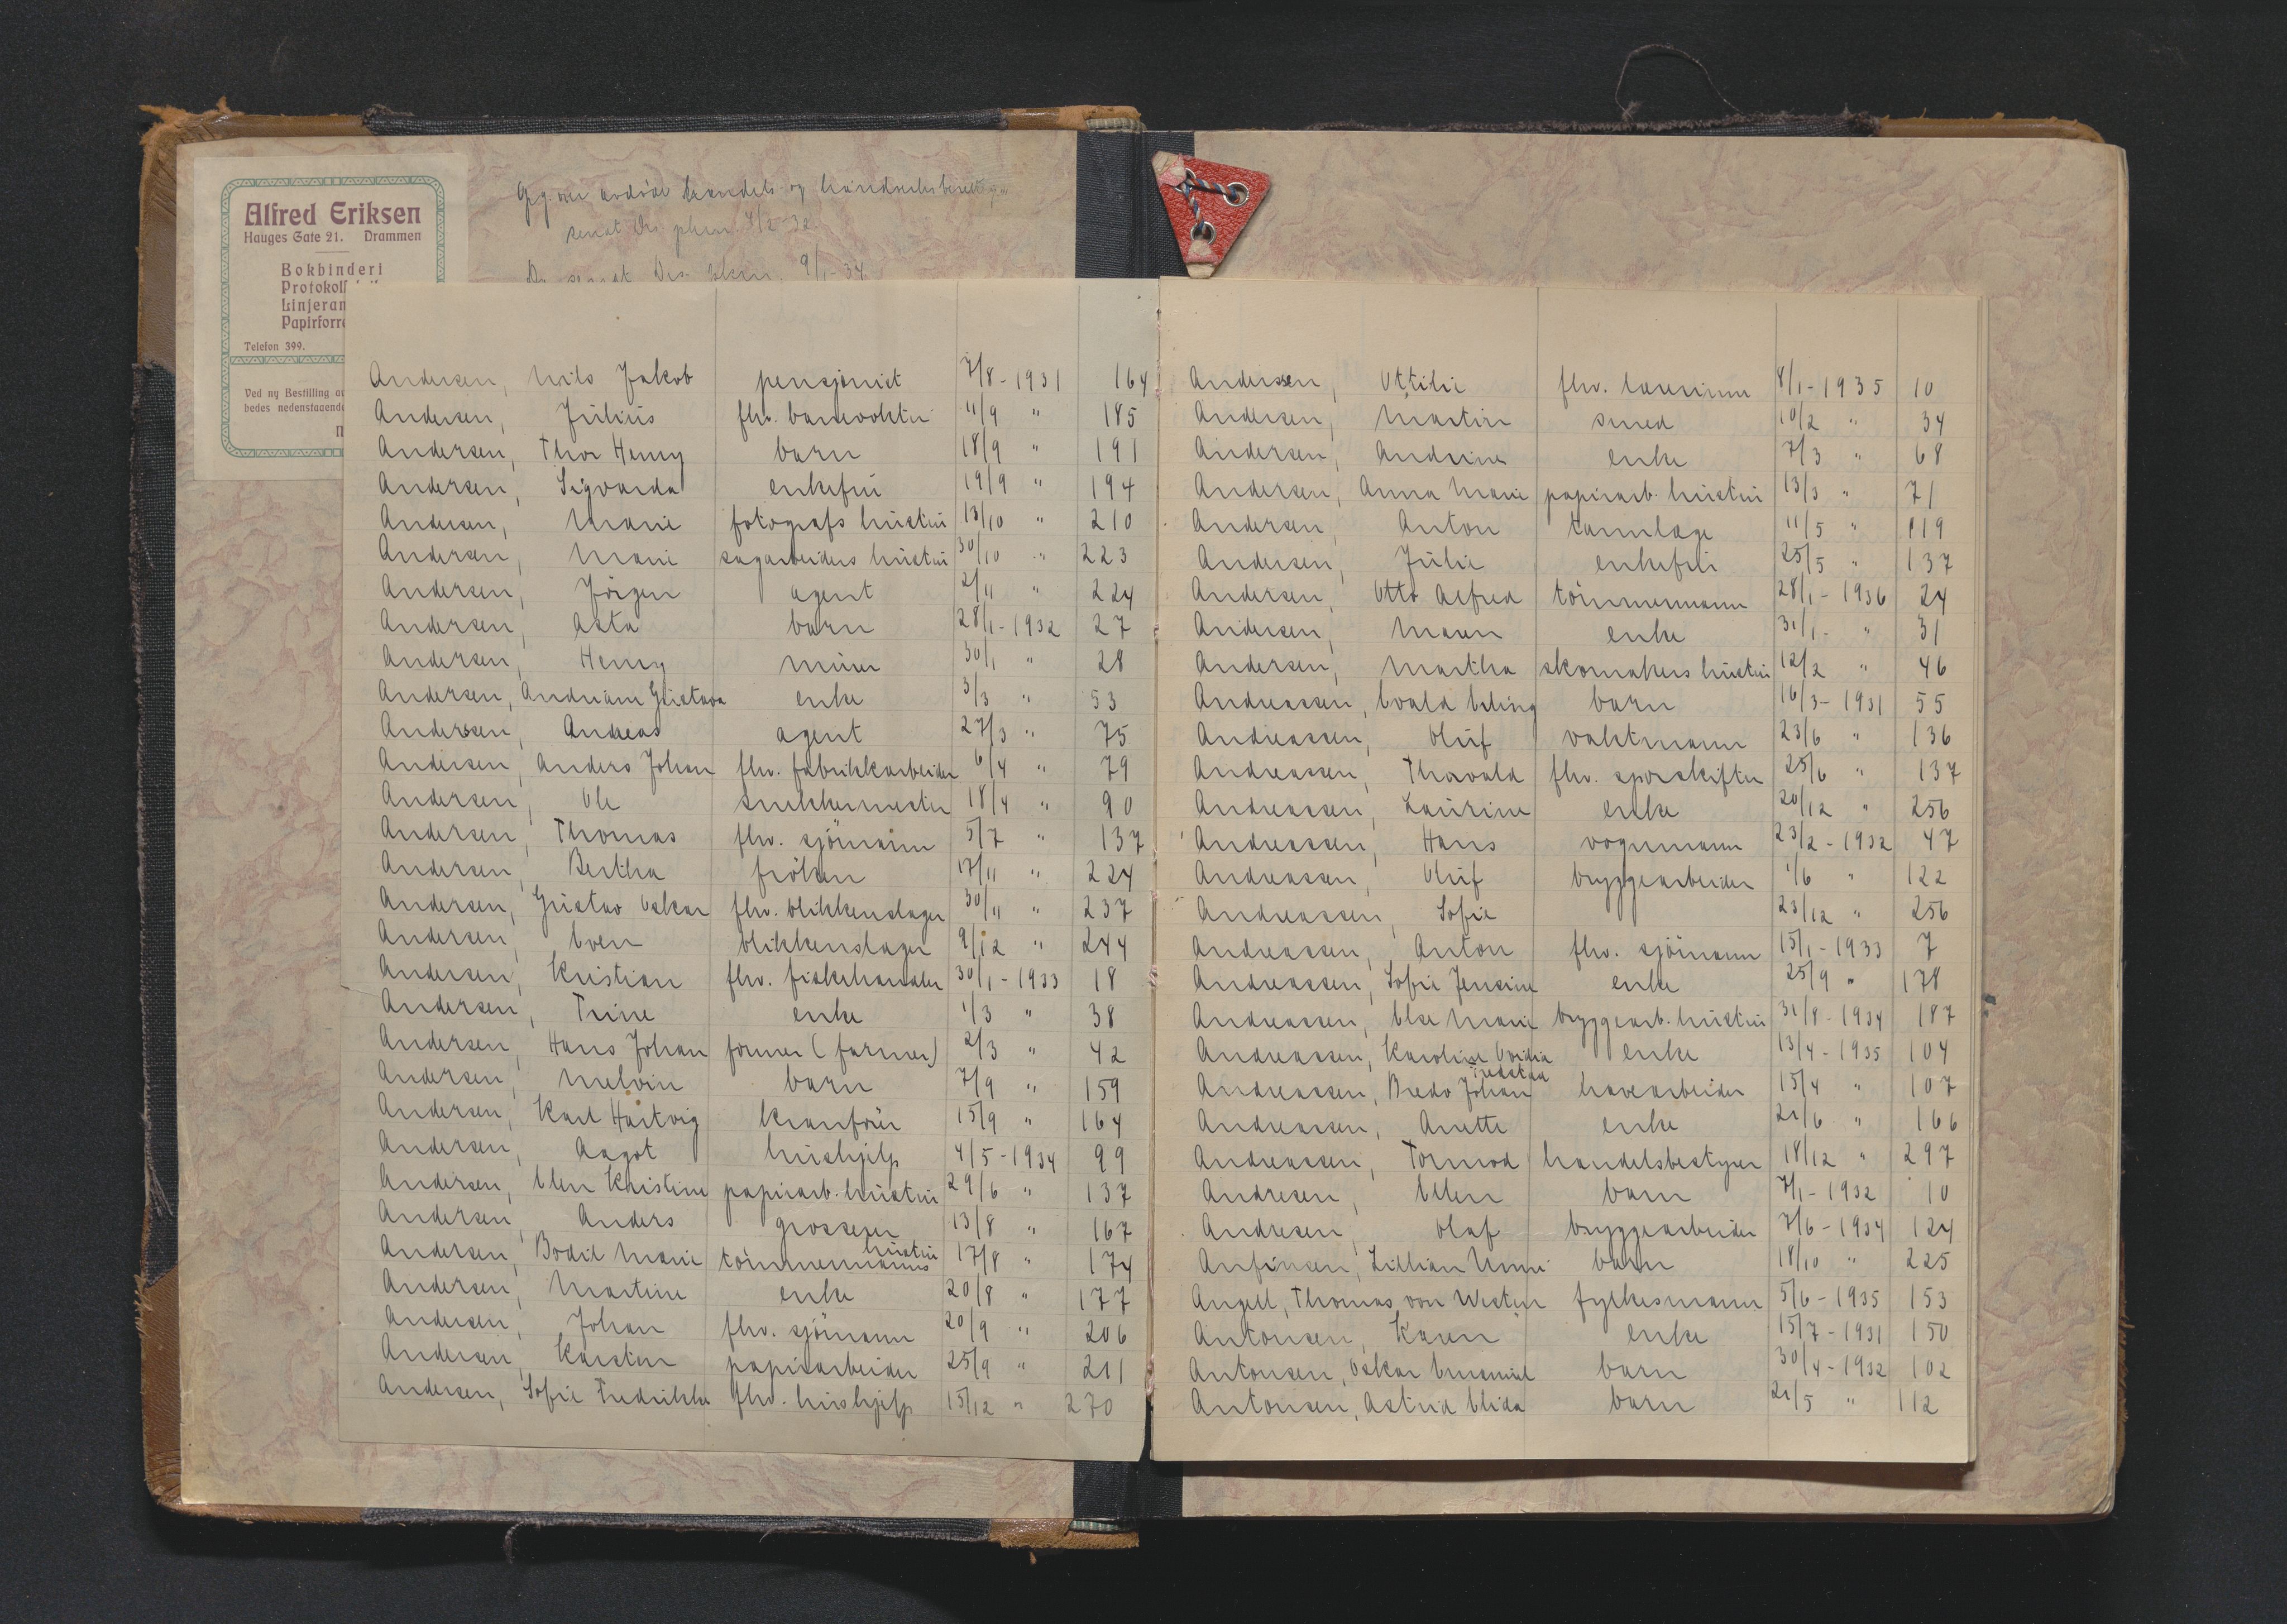 Alfred Eriksen
Hauges Gate 21. Drammen
Bokbinderi
Protokoll
Linjeran
Papirforr
Telefon 399.
Ved ny Bestilling av
bedes nedenstaaende
handels- og
sendt 4/2-32
sendt 9/1-34
Andersen, Nils Jakob pensjonist 7/8-1931 164
Andersen, Julius fhv. banevokter 11/9 " 185
Andersen, Thor Henry barn 18/9 " 191
Andersen, Sigvarda enkefru 19/9 " 194
Andersen, Marie fotografs hustru 13/10 " 210
Andersen, Marie sagarbeiders hustru 30/10 " 223
Andersen, Jörgen agent 2/11 " 224
Andersen, Asta barn 28/1-1932 27
Andersen, Henry murer 30/1 " 28
Andersen, Andriane Gustava enke 3/3 " 53
Andersen, Andreas agent 27/3 " 75
Andersen, Anders Johan fhv. fabrikkarbeider 6/4 " 79
Andersen, Ole snekkermester 18/4 " 90
Andersen, Thomas fhv. sjömann 5/7 " 137
Andersen, Bertha fröken 17/11 " 224
Andersen, Gustav Oskar fhv. blikkenslager 30/11 " 237
Andersen, Even blikkenslager 9/12 " 244
Andersen, Kristian fhv. fiskehandler 30/1-1933 18
Andersen, Trine enke 1/3 " 38
Andersen, Hans Johan former (farmer) 2/3 " 42
Andersen, Melvin barn 7/9 " 159
Andersen, Karl Hartvig kranförer 15/9 " 164
Andersen, Aagot hushjelp 4/5-1934 99
Andersen, Elen Kristine papirarb. hustru 29/6 " 137
Andersen, Anders grosserer 13/8 " 167
Andersen, Bodil Marie tömmermanns hustru 17/8 " 174
Andersen, Martine enke 20/8 " 177
Andersen, Johan fhv. sjömann 20/9 " 206
Andersen, Karsten papirarbeider 25/9 " 211
Andersen, Sofie Fredrikke fhv. hushjelp 15/12 " 270
Anderssen, Ottilie fhv. lærerinne 8/1-1935 10
Andersen, Martin smed 10/2 " 34
Andersen, Andrine enke 7/3 " 68
Andersen, Anna Marie papirarb. hustru 13/3 " 71
Andersen, Anton tannlæge 11/5 " 119
Andersen, Julie enkefru 25/5 " 137
Andersen, Otto Alfred tömmermann 28/1-1936 24
Andersen, Maren enke 31/1- " 31
Andersen, Martha skomakers hustru 12/2 " 46
Andreassen, Evald Eling barn 16/3-1931 55
Andreassen, Oluf vaktmann 23/6 " 136
Andreassen, Thorvald fhv. sporskifter 25/6 " 137
Andreassen, Laurine enke 20/12 " 256
Andreassen, Hans vognmann 23/2-1932 47
Andreassen, Oluf bryggearbeider 1/6 " 122
Andreassen, Sofie 23/12 " 256
Andreassen, Anton fhv. sjömann 15/1-1933 7
Andreassen, Sofie Jensine enke 25/9 " 178
Andreassen, Else Marie bryggearb. hustru 31/8-1934 187
Andreassen, Karoline Ovidia enke 13/4-1935 104
Andreassen, Bredo Johan havearbeider 15/4 " 107
Andreassen, Anette enke 21/6 " 166
Andreassen, Tormod handelsbestyrer 18/12 " 297
Andresen, Ellen barn 7/1-1932 10
Andresen, Olaf bryggearbeider 7/6-1934 124
Anfinsen, Lillian Unni barn 18/10 " 225
Angell, Thomas von Westen fylkesmann 5/6-1935 153
Antonsen, Karen enke 15/7-1931 150
Antonsen, Oskar Emanuel barn 30/4-1932 102
Antonsen, Astrid Elida barn 21/5 " 112